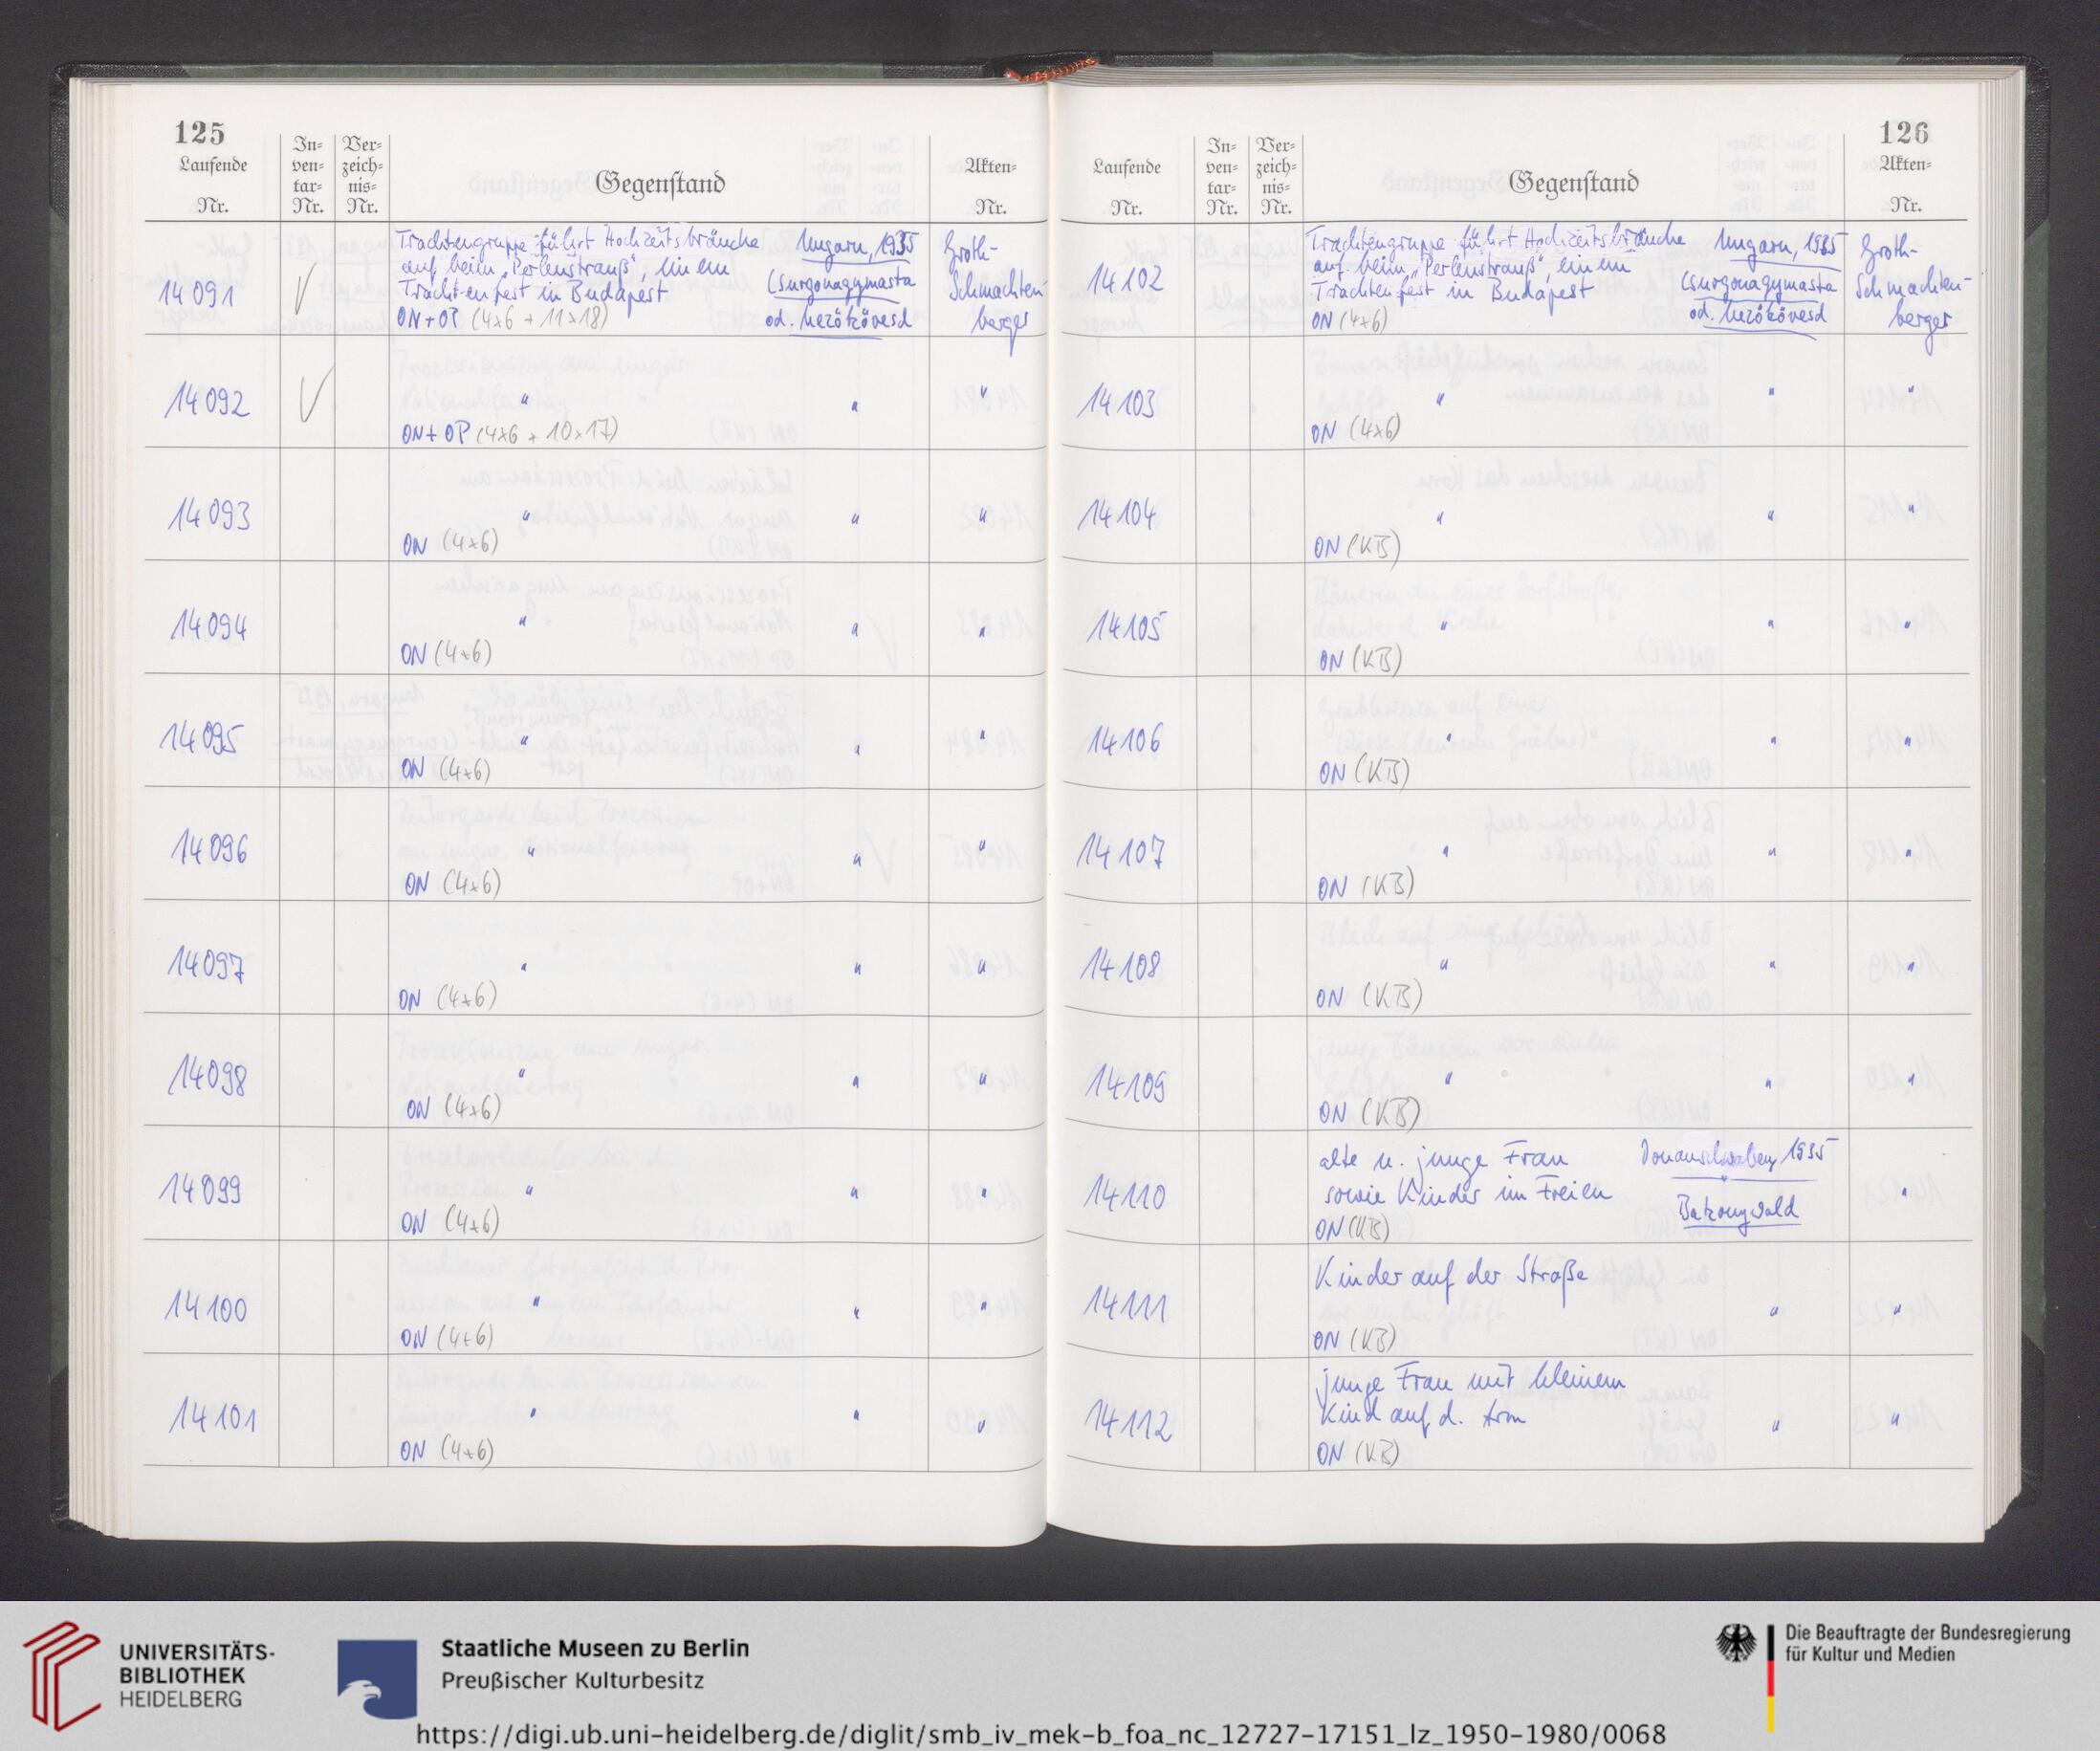 125
Laufende Nr.
In-ven-tar-Nr.
Ver-zeich-nis-Nr.
Gegenstand
Akten-Nr.
14091 Trachtengruppe führt Hochzeitsbräuche
auf beim „Perlenstrauß", einem
Trachtenfest in Budapest
ON+OP (4x6 + 11x18)
Ungarn, 1935
Csurgonagymarta
od. Mezökövesd
Groth-
Schmachten-
berger
14092 " " "
ON+OP (4x6 + 10x17)
14093 " " "
ON (4x6)
14094 " " "
ON (4x6)
14095 " " "
ON (4x6)
14096 " " "
ON (4x6)
14097 " " "
ON (4x6)
14098 " " "
ON (4x6)
14099 " " "
ON (4x6)
14100 " " "
ON (4x6)
14101 " " "
ON (4x6)
126
Laufende Nr.
In-ven-tar-Nr.
Ver-zeich-nis-Nr.
Gegenstand
Akten-Nr.
14102 Trachtengruppe führt Hochzeitsbräuche
auf beim „Perlenstrauß", einem
Trachtenfest in Budapest
ON (4x6)
Ungarn, 1935
Csurgonagymarta
od. Mezökövesd
Groth-
Schmachten-
berger
14103 " " "
ON (4x6)
14104 " " "
ON (KB)
14105 " " "
ON (KB)
14106 " " "
ON (KB)
14107 " " "
ON (KB)
14108 " " "
ON (KB)
14109 " " "
ON (KB)
14110 alte u. junge Frau
sowie Kinder im Freien
ON (KB)
Donauschwaben, 1935
Bakonywald
"
14111 Kinder auf der Straße
" "
ON (KB)
14112 junge Frau mit kleinem
Kind auf d. Arm " "
ON (KB)
UNIVERSITÄTS-
BIBLIOTHEK
HEIDELBERG
Staatliche Museen zu Berlin
Preußischer Kulturbesitz
Die Beauftragte der Bundesregierung
für Kultur und Medien
https://digi.ub.uni-heidelberg.de/diglit/smb_iv_mek-b_foa_nc_12727-17151_lz_1950-1980/0068